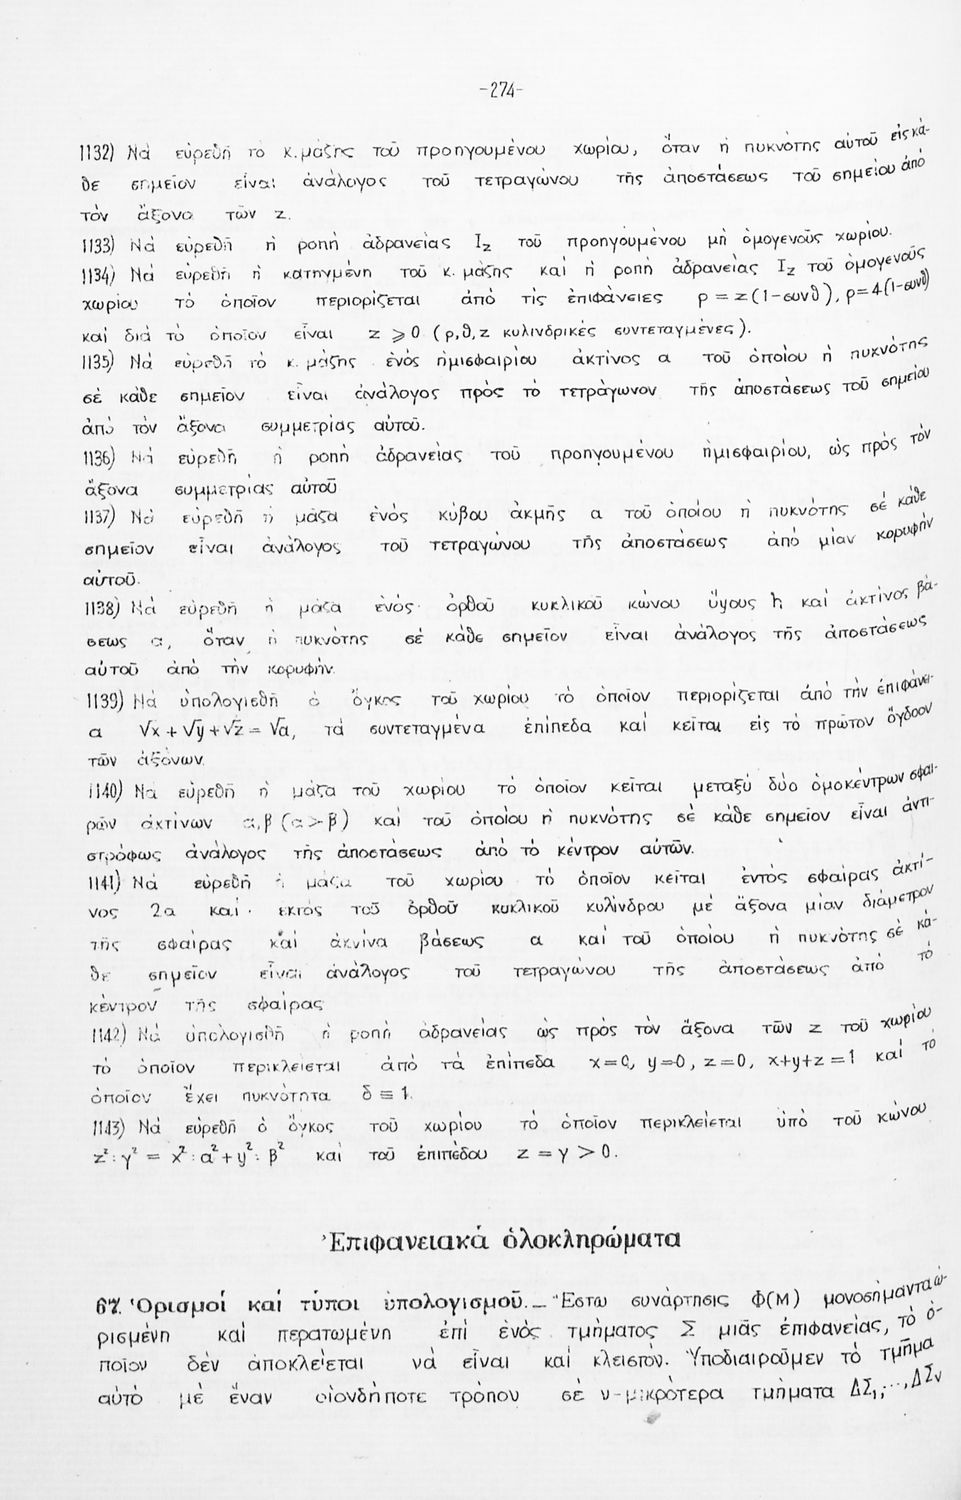 -274-
1132) Νά εὑρεθῆ τό κ. μάζης τοῦ προηγουμένου χωρίου, ὅταν ἡ πυκνότης αὐτοῦ εἰς κά-
θε σημεῖον εἶναι ἀνάλογος τοῦ τετραγώνου τῆς ἀποστάσεως τοῦ σημείου ἀπό
τόν ἄξονα τῶν z.
1133) Νά εὑρεθῆ ἡ ροπή ἀδρανείας Iz τοῦ προηγουμένου μή ὁμογενοῦς χωρίου.
1134) Νά εὑρεθῆ ἡ κατηγμένη τοῦ κ. μάζης καί ἡ ροπή ἀδρανείας Iz τοῦ ὁμογενοῦς
χωρίου τό ὁποῖον περιορίζεται ἀπό τίς ἐπιφάνειες ρ = z(1-συνθ), ρ=4(1-συνθ)
καί διά τό ὁποῖον εἶναι z ⩾ 0 (ρ,θ,z κυλινδρικές συντεταγμένες).
1135) Νά εὑρεθῆ τό κ. μάζης ἑνός ἡμισφαιρίου ἀκτίνος α τοῦ ὁποίου ἡ πυκνότης
σέ κάθε σημεῖον εἶναι ἀνάλογος πρός τό τετράγωνον τῆς ἀποστάσεως τοῦ σημείου
ἀπό τόν ἄξονα συμμετρίας αὐτοῦ.
1136) Νά εὑρεθῆ ἡ ροπή ἀδρανείας τοῦ προηγουμένου ἡμισφαιρίου, ὡς πρός τόν
ἄξονα συμμετρίας αὐτοῦ
1137) Νά εὑρεθῆ ἡ μάζα ἑνός κύβου ἀκμῆς α τοῦ ὁποίου ἡ πυκνότης σέ κάθε
σημεῖον εἶναι ἀνάλογος τοῦ τετραγώνου τῆς ἀποστάσεως ἀπό μίαν κορυφήν
αὐτοῦ.
1138) Νά εὑρεθῆ ἡ μάζα ἑνός ὀρθοῦ κυκλικοῦ κώνου ὕψους h καί ἀκτίνος βά-
σεως α, ὅταν ἡ πυκνότης σέ κάθε σημεῖον εἶναι ἀνάλογος τῆς ἀποστάσεως
αὐτοῦ ἀπό τήν κορυφήν.
1139) Νά ὑπολογισθῆ ὁ ὄγκος τοῦ χωρίου τό ὁποῖον περιορίζεται ἀπό τήν ἐπιφάνει-
α √x + √y + √z = √α, τά συντεταγμένα ἐπίπεδα καί κεῖται εἰς τό πρῶτον ὄγδοον
τῶν ἀξόνων.
1140) Νά εὑρεθῆ ἡ μάζα τοῦ χωρίου τό ὁποῖον κεῖται μεταξύ δύο ὁμοκέντρων σφαι-
ρῶν ἀκτίνων α,β (α > β) καί τοῦ ὁποίου ἡ πυκνότης σέ κάθε σημεῖον εἶναι ἀντι-
στρόφως ἀνάλογος τῆς ἀποστάσεως ἀπό τό κέντρον αὐτῶν.
1141) Νά εὑρεθῆ ἡ μάζα τοῦ χωρίου τό ὁποῖον κεῖται ἐντός σφαίρας ἀκτί-
νος 2α καί ἐκτός τοῦ ὀρθοῦ κυκλικοῦ κυλίνδρου μέ ἄξονα μίαν διάμετρον
τῆς σφαίρας καί ἀκτίνα βάσεως α καί τοῦ ὁποίου ἡ πυκνότης σέ κά-
θε σημεῖον εἶναι ἀνάλογος τοῦ τετραγώνου τῆς ἀποστάσεως ἀπό τό
κέντρον τῆς σφαίρας
1142) Νά ὑπολογισθῆ ἡ ροπή ἀδρανείας ὡς πρός τόν ἄξονα τῶν z τοῦ χωρίου
τό ὁποῖον περικλείεται ἀπό τά ἐπίπεδα x=0, y=0, z=0, x+y+z=1 καί τό
ὁποῖον ἔχει πυκνότητα δ ≡ 1.
1143) Νά εὑρεθῆ ὁ ὄγκος τοῦ χωρίου τό ὁποῖον περικλείεται ὑπό τοῦ κώνου
z²:γ² = x²:α²+y²:β² καί τοῦ ἐπιπέδου z = γ > 0.
Ἐπιφανειακά ὁλοκληρώματα
67. Ὁρισμοί καί τύποι ὑπολογισμοῦ.— Ἔστω συνάρτησις Φ(Μ) μονοσήμαντα ὡ-
ρισμένη καί περατωμένη ἐπί ἑνός τμήματος Σ μιᾶς ἐπιφανείας, τό ὁ-
ποῖον δέν ἀποκλείεται νά εἶναι καί κλειστόν. Ὑποδιαιροῦμεν τό τμῆμα
αὐτό μέ ἕναν οἱονδήποτε τρόπον σέ ν-μικρότερα τμήματα ΔΣ₁,...,ΔΣν